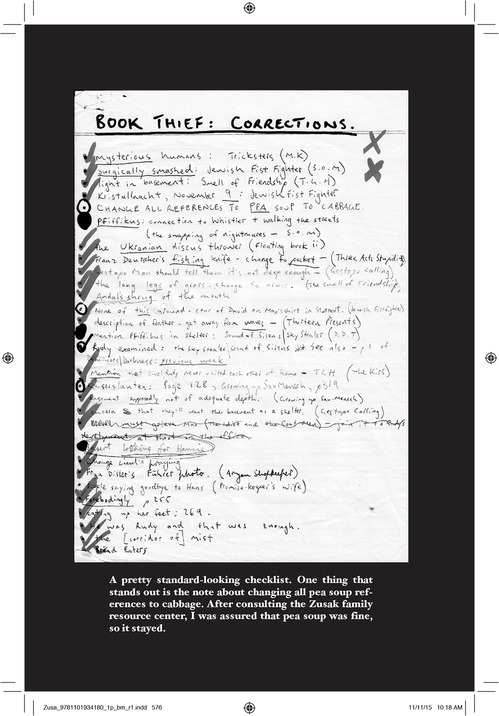 BOOK THIEF: CORRECTIONS.
mysterious humans: Tricksters (M.K)
surgically smashed: Jewish Fist Fighter (S.O.M)
light in basement: Smell of Friendship (T.G.H)
Kristallnacht, November 9: Jewish Fist Fighter
CHANGE ALL REFERENCES TO PEA SOUP TO CABBAGE.
Pfiffikus: connection to Whistler + walking the streets
(the swapping of nightmares – S.O.M)
the Ukranian discus thrower (Floating book ii)
Franz Deutscher's fishing knife – change to pocket – (Three Acts Stupidity)
Gestapo Man should tell them it's not deep enough – (Gestapo Calling)
the long legs of grass. Change to arms. (The Smell of Friendship)
Andals shrug of the mouth
None of this around – star of David on Max's shirt in (Jewish Fistfighter)
description of feather – get away from waves – (Thirteen Presents)
Mention Pfiffikus in shelter: Sound of Sirens, Sky Stealer (D.D.T)
Rudy examined: the sky stealer, Sound of Sirens see also – p 1 of
Darkness: previous week
Mention that Liesel/Rudy never visited each other at home – TGH (The Kiss)
Page 128, Growing up SauMensch, p319
basement supposedly not of adequate depth. (Growing up SauMensch)
that they'll want the basement as a shelter. (Gestapo Calling)
must
at start in the office.
Insert Looking for Hansie
Change Liesel's praying
Frau Diller's Führer photo. (Aryan Shopkeeper)
saying goodbye to Hans (Promise-keeper's wife)
Forebodingly p 255
eating up her feet: 269.
He was Rudy and that was enough.
the [corridor of] mist
Enters
A pretty standard-looking checklist. One thing that
stands out is the note about changing all pea soup ref-
erences to cabbage. After consulting the Zusak family
resource center, I was assured that pea soup was fine,
so it stayed.
Zusa_9781101934180_1p_bm_r1.indd 576
11/11/15 10:18 AM